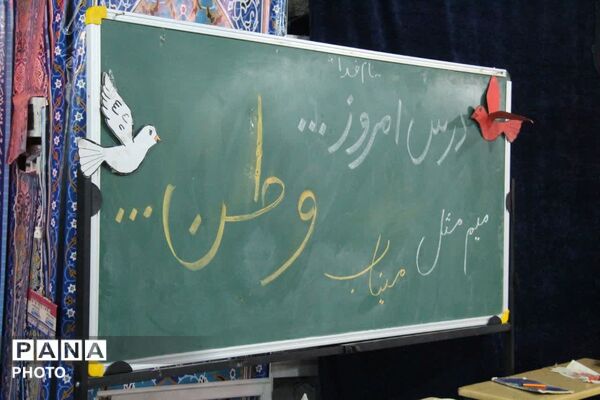 بنام خدا
درس امروز...
وطن...
میم مثل
میناب
PANA
PHOTO